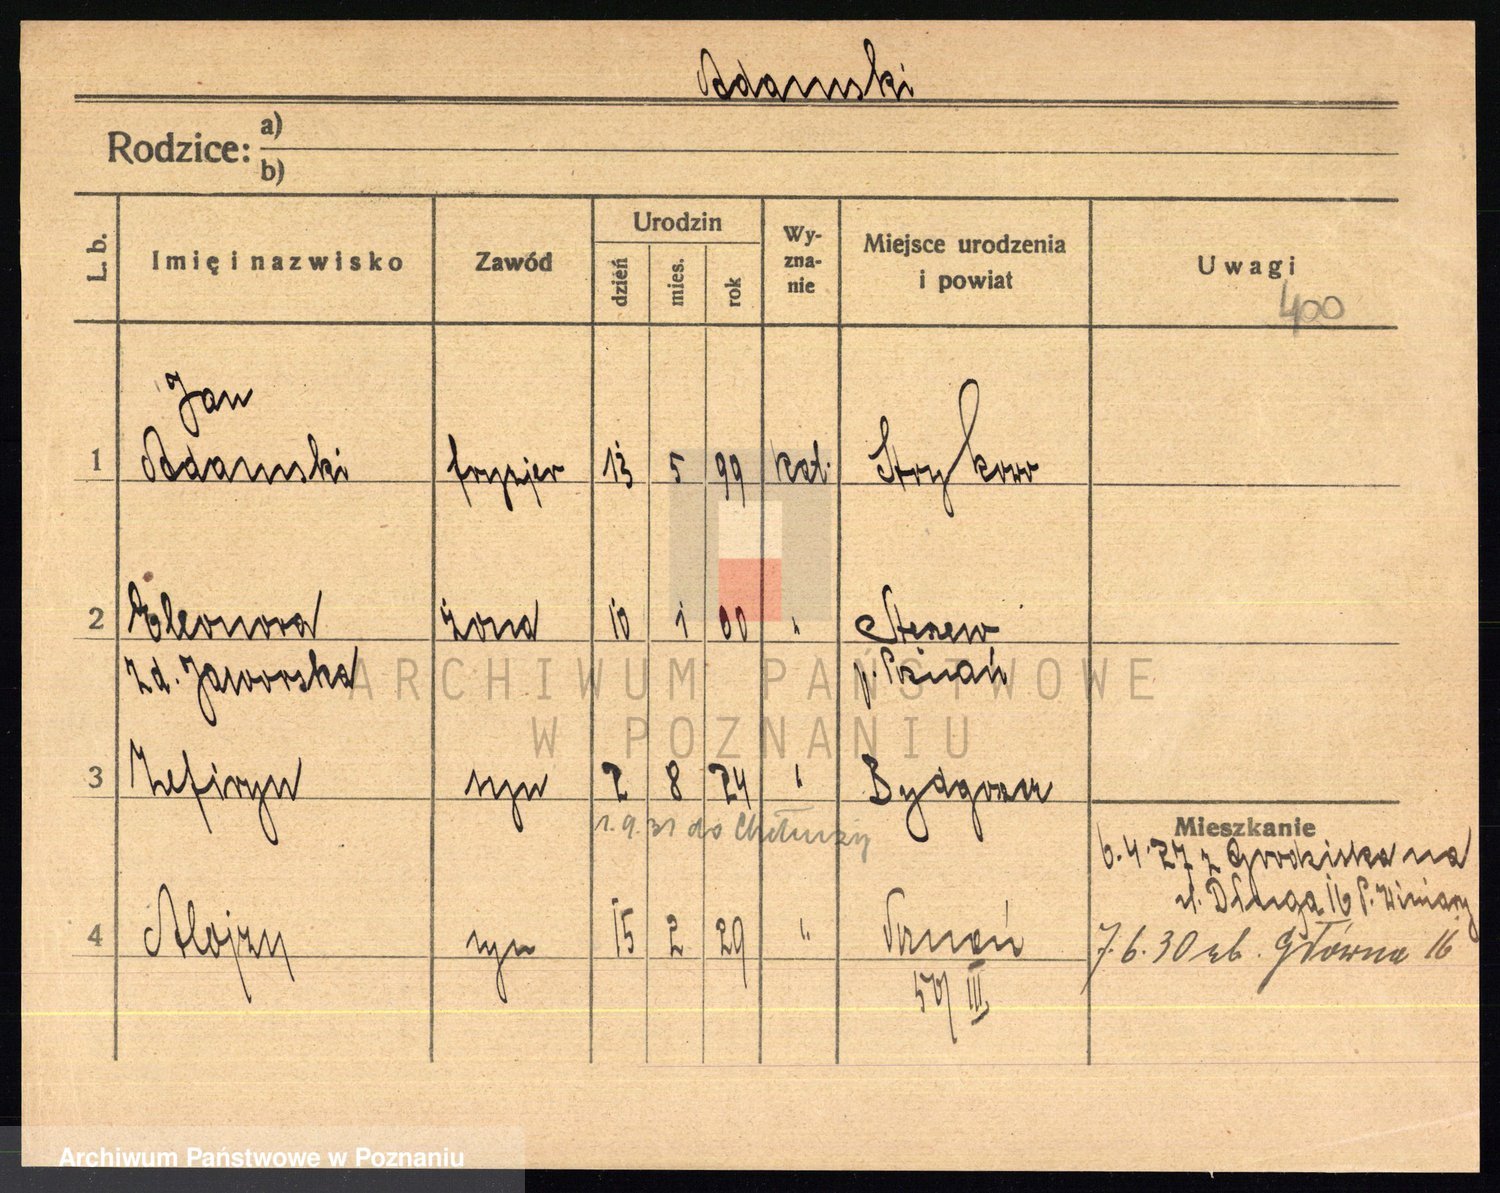 Adamski
Rodzice: a)
b)
L. b.
Imię i nazwisko
Zawód
Urodzin
dzień
mies.
rok
Wy-
zna-
nie
Miejsce urodzenia
i powiat
Uwagi
400
Jan
1 Adamski fryzjer 13 5 99 kat. Strykowo
2 Eleonora żona 10 1 00 " Stęszew
zd. Jaworska p. Poznań
ARCHIWUM PAŃSTWOWE
W POZNANIU
3 Zefiryn syn 2 8 24 " Bydgoszcz
1.9.31 do
Mieszkanie
6.4.27 z Grodziska na
ul. Długa 16 P. Winiary
4 Alojzy syn 15 2 29 " Poznań
7.6.30 ub. Główna 16
50/ III
Archiwum Państwowe w Poznaniu